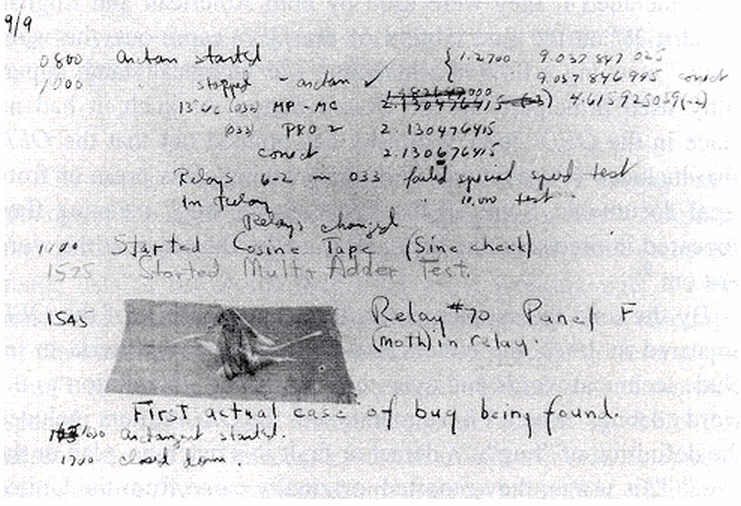 9/9
0800 Antan started { 1.2700 9.037 847 025
1000 " stopped - antan ✓ 9.037 846 995 conect
13"uc (032) MP-MC 2.130476415 (-3) 4.615925059(-2)
(033) PRO 2 2.130476415
conect 2.130676415
Relays 6-2 in 033 failed special speed test
in relay " 10,000 test
Relays changed
1100 Started Cosine Tape (Sine check)
1525 Started Mult+Adder Test.
1545 Relay #70 Panel F
(moth) in relay.
First actual case of bug being found.
1630 antangent started.
1700 closed down.